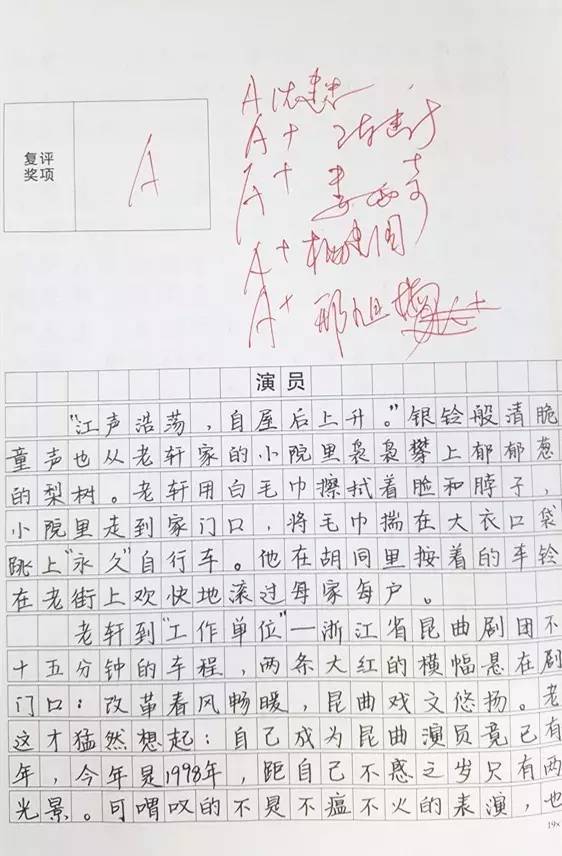 复评
奖项
A
A
A+
A+
A+
A+
演员
“江声浩荡，自屋后上升。”银铃般清脆
童声也从老轩家的小院里袅袅攀上郁郁葱
的梨树。老轩用白毛巾擦拭着脸和脖子，
小院里走到家门口，将毛巾揣在大衣口袋
跳上“永久”自行车。他在胡同里按着的车铃
在老街上欢快地滚过每家每户。
老轩到“工作单位”—浙江省昆曲剧团不
十五分钟的车程，两条大红的横幅悬在剧
门口：改革春风畅暖，昆曲戏文悠扬。老
这才猛然想起：自己成为昆曲演员竟已有
年，今年是1998年，距自己不惑之岁只有两
光景。可喟叹的不是不瘟不火的表演，也